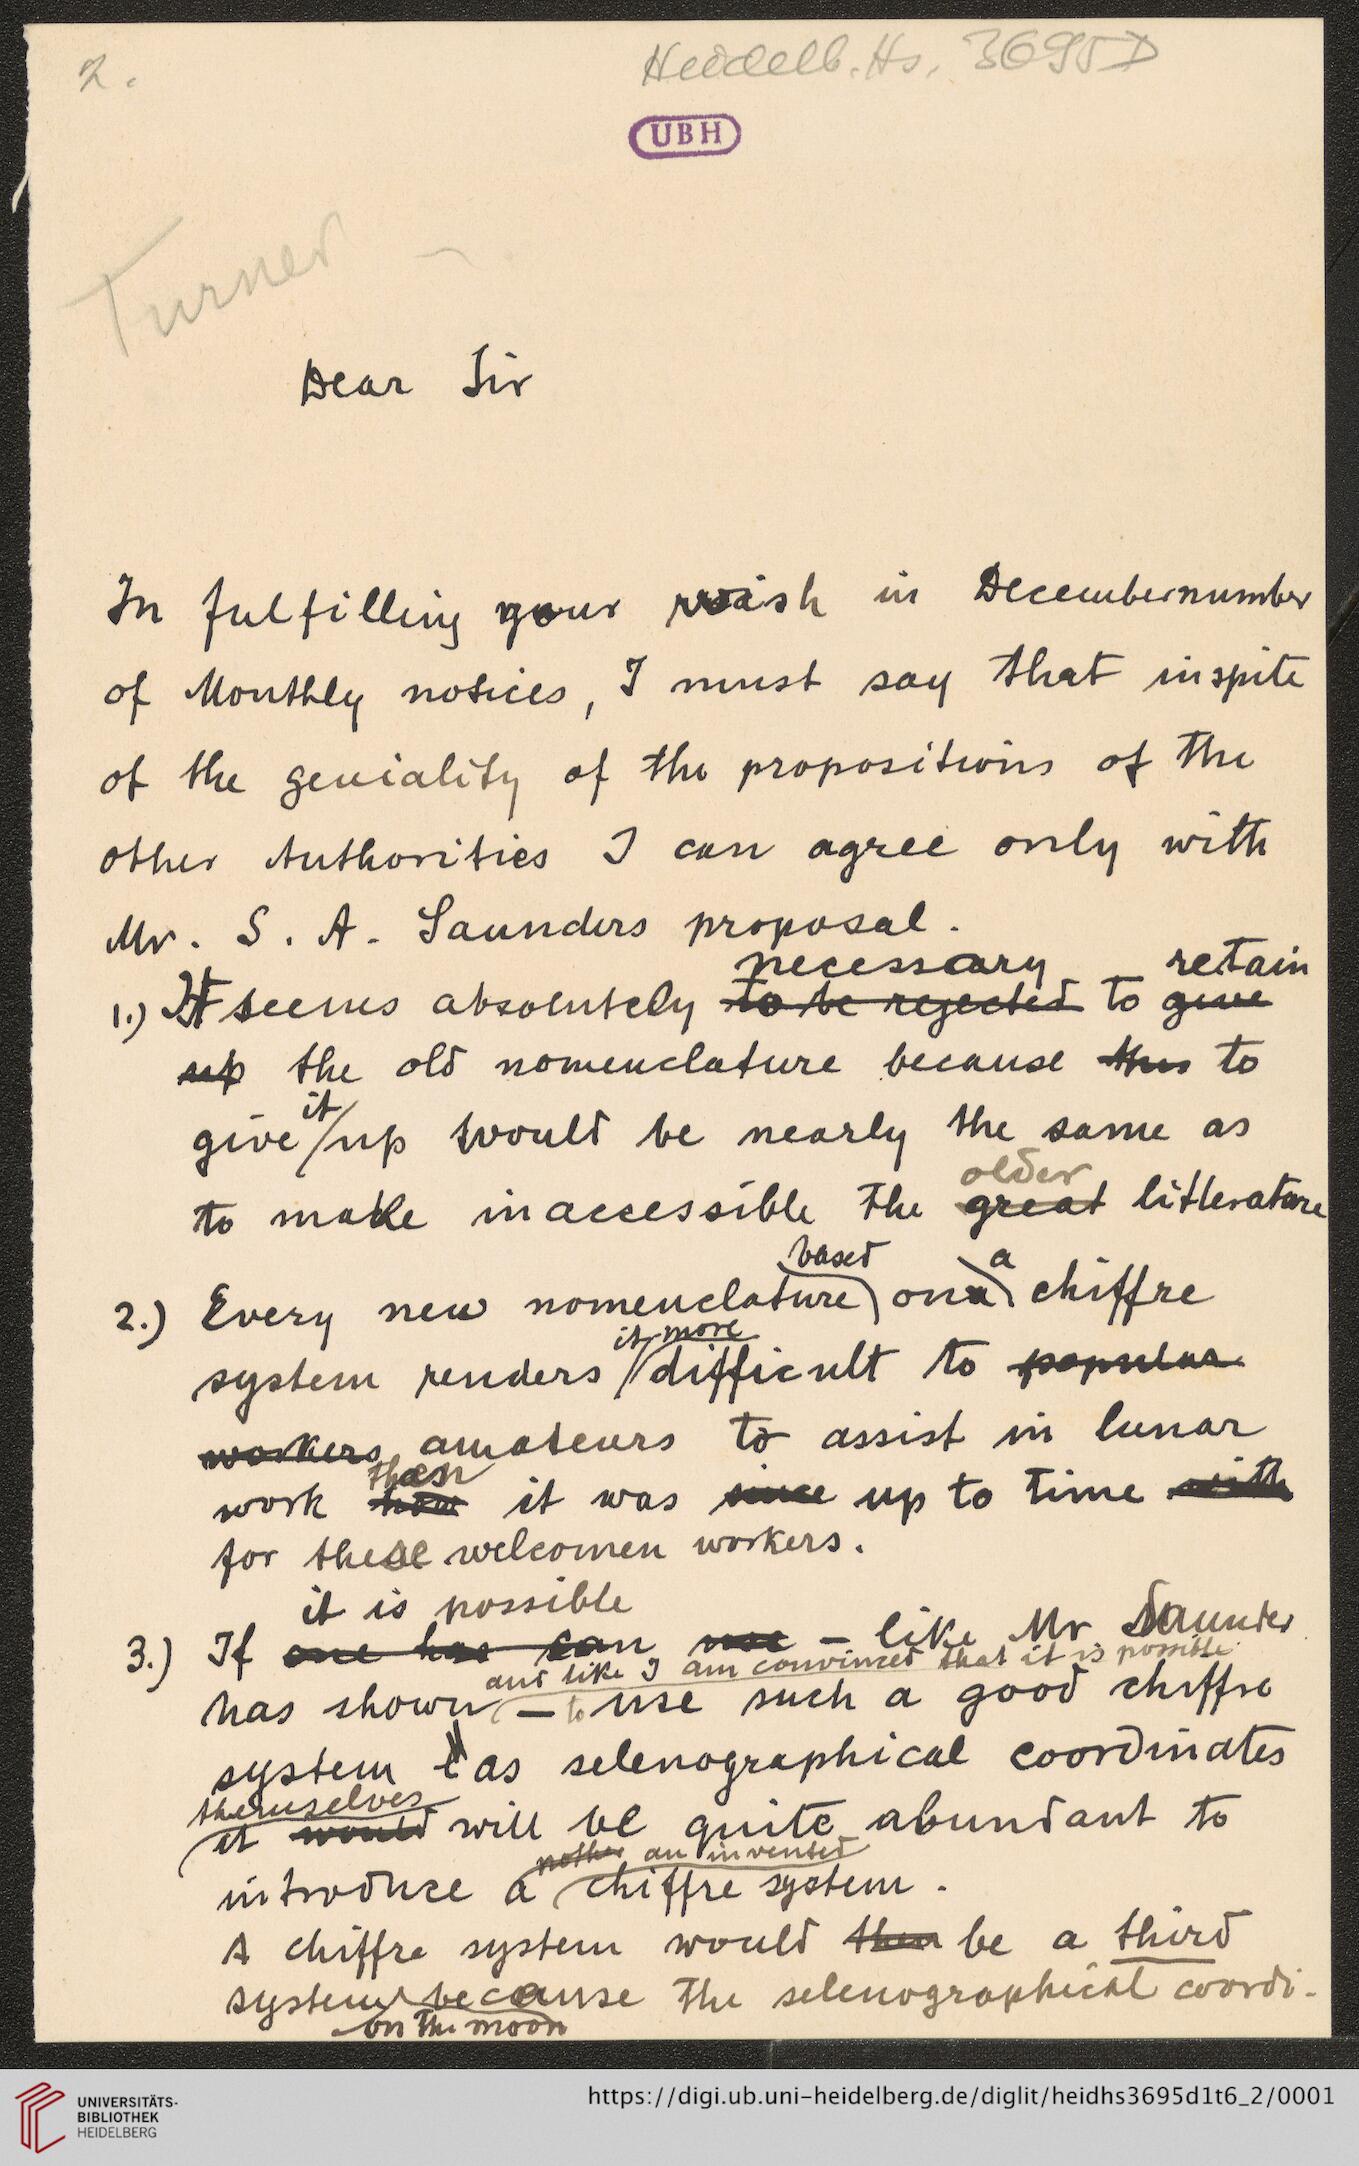 2.
Heidelb. Hs. 3695 D
UBH
Turner
Dear Sir
In fulfilling your wish in Decembernumber
of Monthly notices, I must say that inspite
of the geniality of the propositions of the
other Authorities I can agree only with
Mr. S. A. Saunders proposal.
necessary retain
1.) It seems absolutely to be rejected to give
up the old nomenclature because thus to
it
give up would be nearly the same as
older
to make inaccessible the great litterature
based a
2.) Every new nomenclature on a chiffre
it more
system renders difficult to popular
workers amateurs to assist in lunar
than
work how it was since up to time with
for these welcomen workers.
it is possible
3.) If one has can use – like Mr Saunder
and like I am convinced that it is possible
has shown – to use such a good chiffre
system as selenographical coordinates
themselves
it would will be quite abundant to
nother an invented
introduce a chiffre system.
A chiffre system would then be a third
system because the selenographical coordi-
on the moon
UNIVERSITÄTS-
BIBLIOTHEK
HEIDELBERG
https://digi.ub.uni-heidelberg.de/diglit/heidhs3695d1t6_2/0001